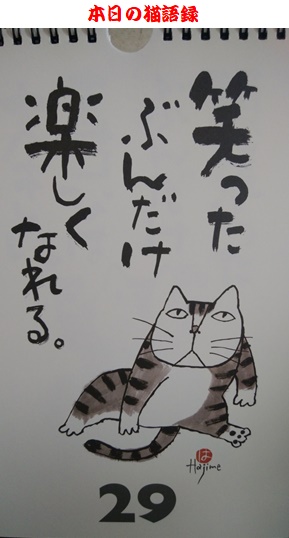 本日の猫語録
笑った
ぶんだけ
楽しく
なれる。
は
Hajime
29